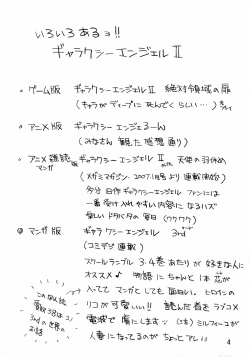 いろいろあるョ!!
ギャラクシーエンジェルⅡ
○ ゲーム版 ギャラクシーエンジェルⅡ 絶対領域の扉
(キャラがディープに死んでくらしい…)
○ アニメ版 ギャラクシーエンジェる～ん
(みなさん観た感想通り)
○ アニメ雑誌マンガ版 ギャラクシーエンジェルⅡ 天使の羽休め
(メガミマガジン・2007.1月号より連載開始)
今分 旧作ギャラクシーエンジェルファンには
一番受け入れやすい内容になるハズ
楽しいドタバタの毎日(ワクワク)
◎ マンガ版 ギャラクシーエンジェル3rd
(コミデジ連載)
スクールランブル3.4巻あたりが好きな人に
オススメ♪ 物語にちゃんと1本芯が
入っててマンガとしても面白い。ヒロインの
リコが可愛い!! 読んだ者をラブコメ
電波で虜にしまそッ(笑) ミルフィーユが
人妻になってるのがちょっと
このほん読
3rdの世界の
お話
4